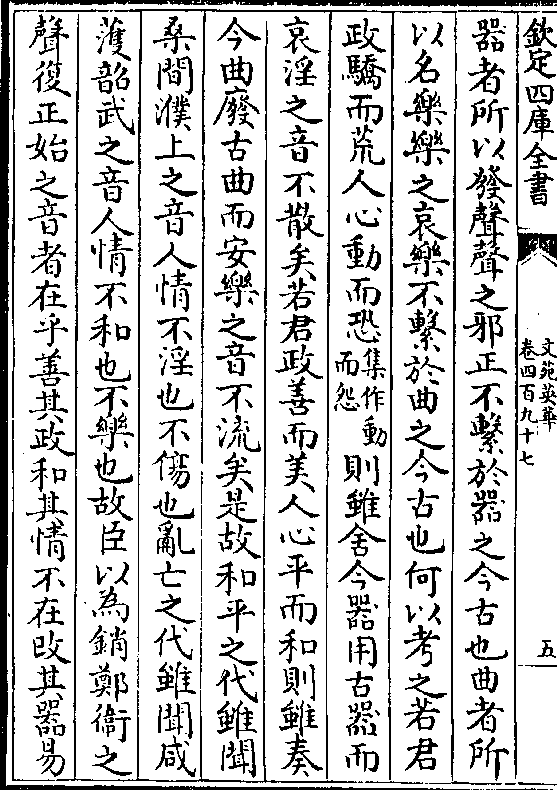 欽定四庫全書
文苑英華
卷四百九十七
五
器者所以發聲聲之邪正不繫於器之今古也曲者所
以名樂樂之哀樂不繫於曲之今古也何以考之若君
政驕而荒人心動而恐集作動而怨則雖舍今器用古器而
哀淫之音不散矣若君政善而美人心平而和則雖奏
今曲廢古曲而安樂之音不流矣是故和平之代雖聞
桑間濮上之音人情不淫也不傷也亂亡之代雖聞咸
頀韶武之音人情不和也不樂也故臣以為銷鄭衞之
聲復正始之音者在乎善其政和其情不在改其器易